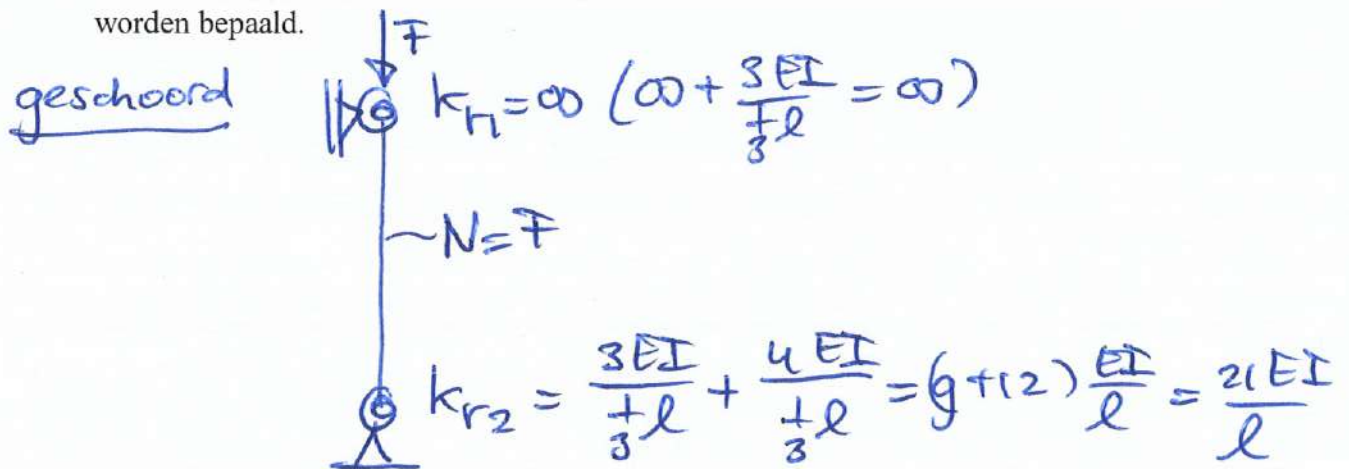 worden bepaald.
F
geschoord
k_{r1} = ∞ (∞ + \frac{3EI}{\frac{1}{3}ℓ} = ∞)
N = F
k_{r2} = \frac{3EI}{\frac{1}{3}ℓ} + \frac{4EI}{\frac{1}{3}ℓ} = (9+12) \frac{EI}{ℓ} = \frac{21EI}{ℓ}